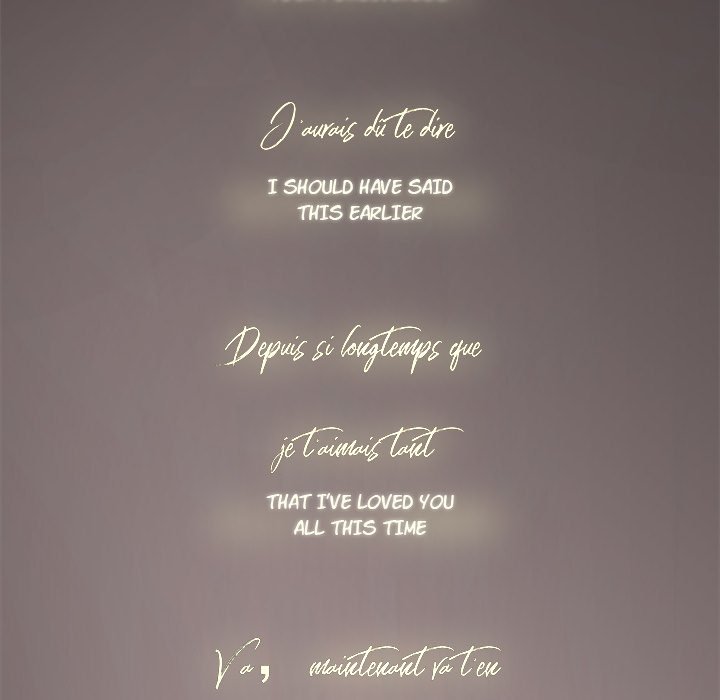 J'aurais dû te dire
I SHOULD HAVE SAID
THIS EARLIER
Depuis si longtemps que
je t'aimais tant
THAT I'VE LOVED YOU
ALL THIS TIME
Va, maintenant va t'en